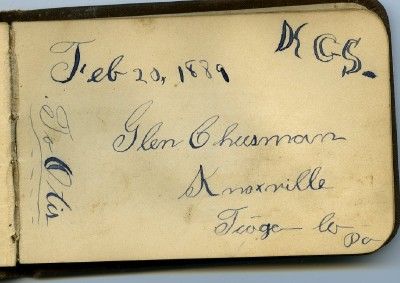 Feb 20, 1889
K G S.
To Otis
Glen Chusman
Knoxville
Tioga Co
Pa